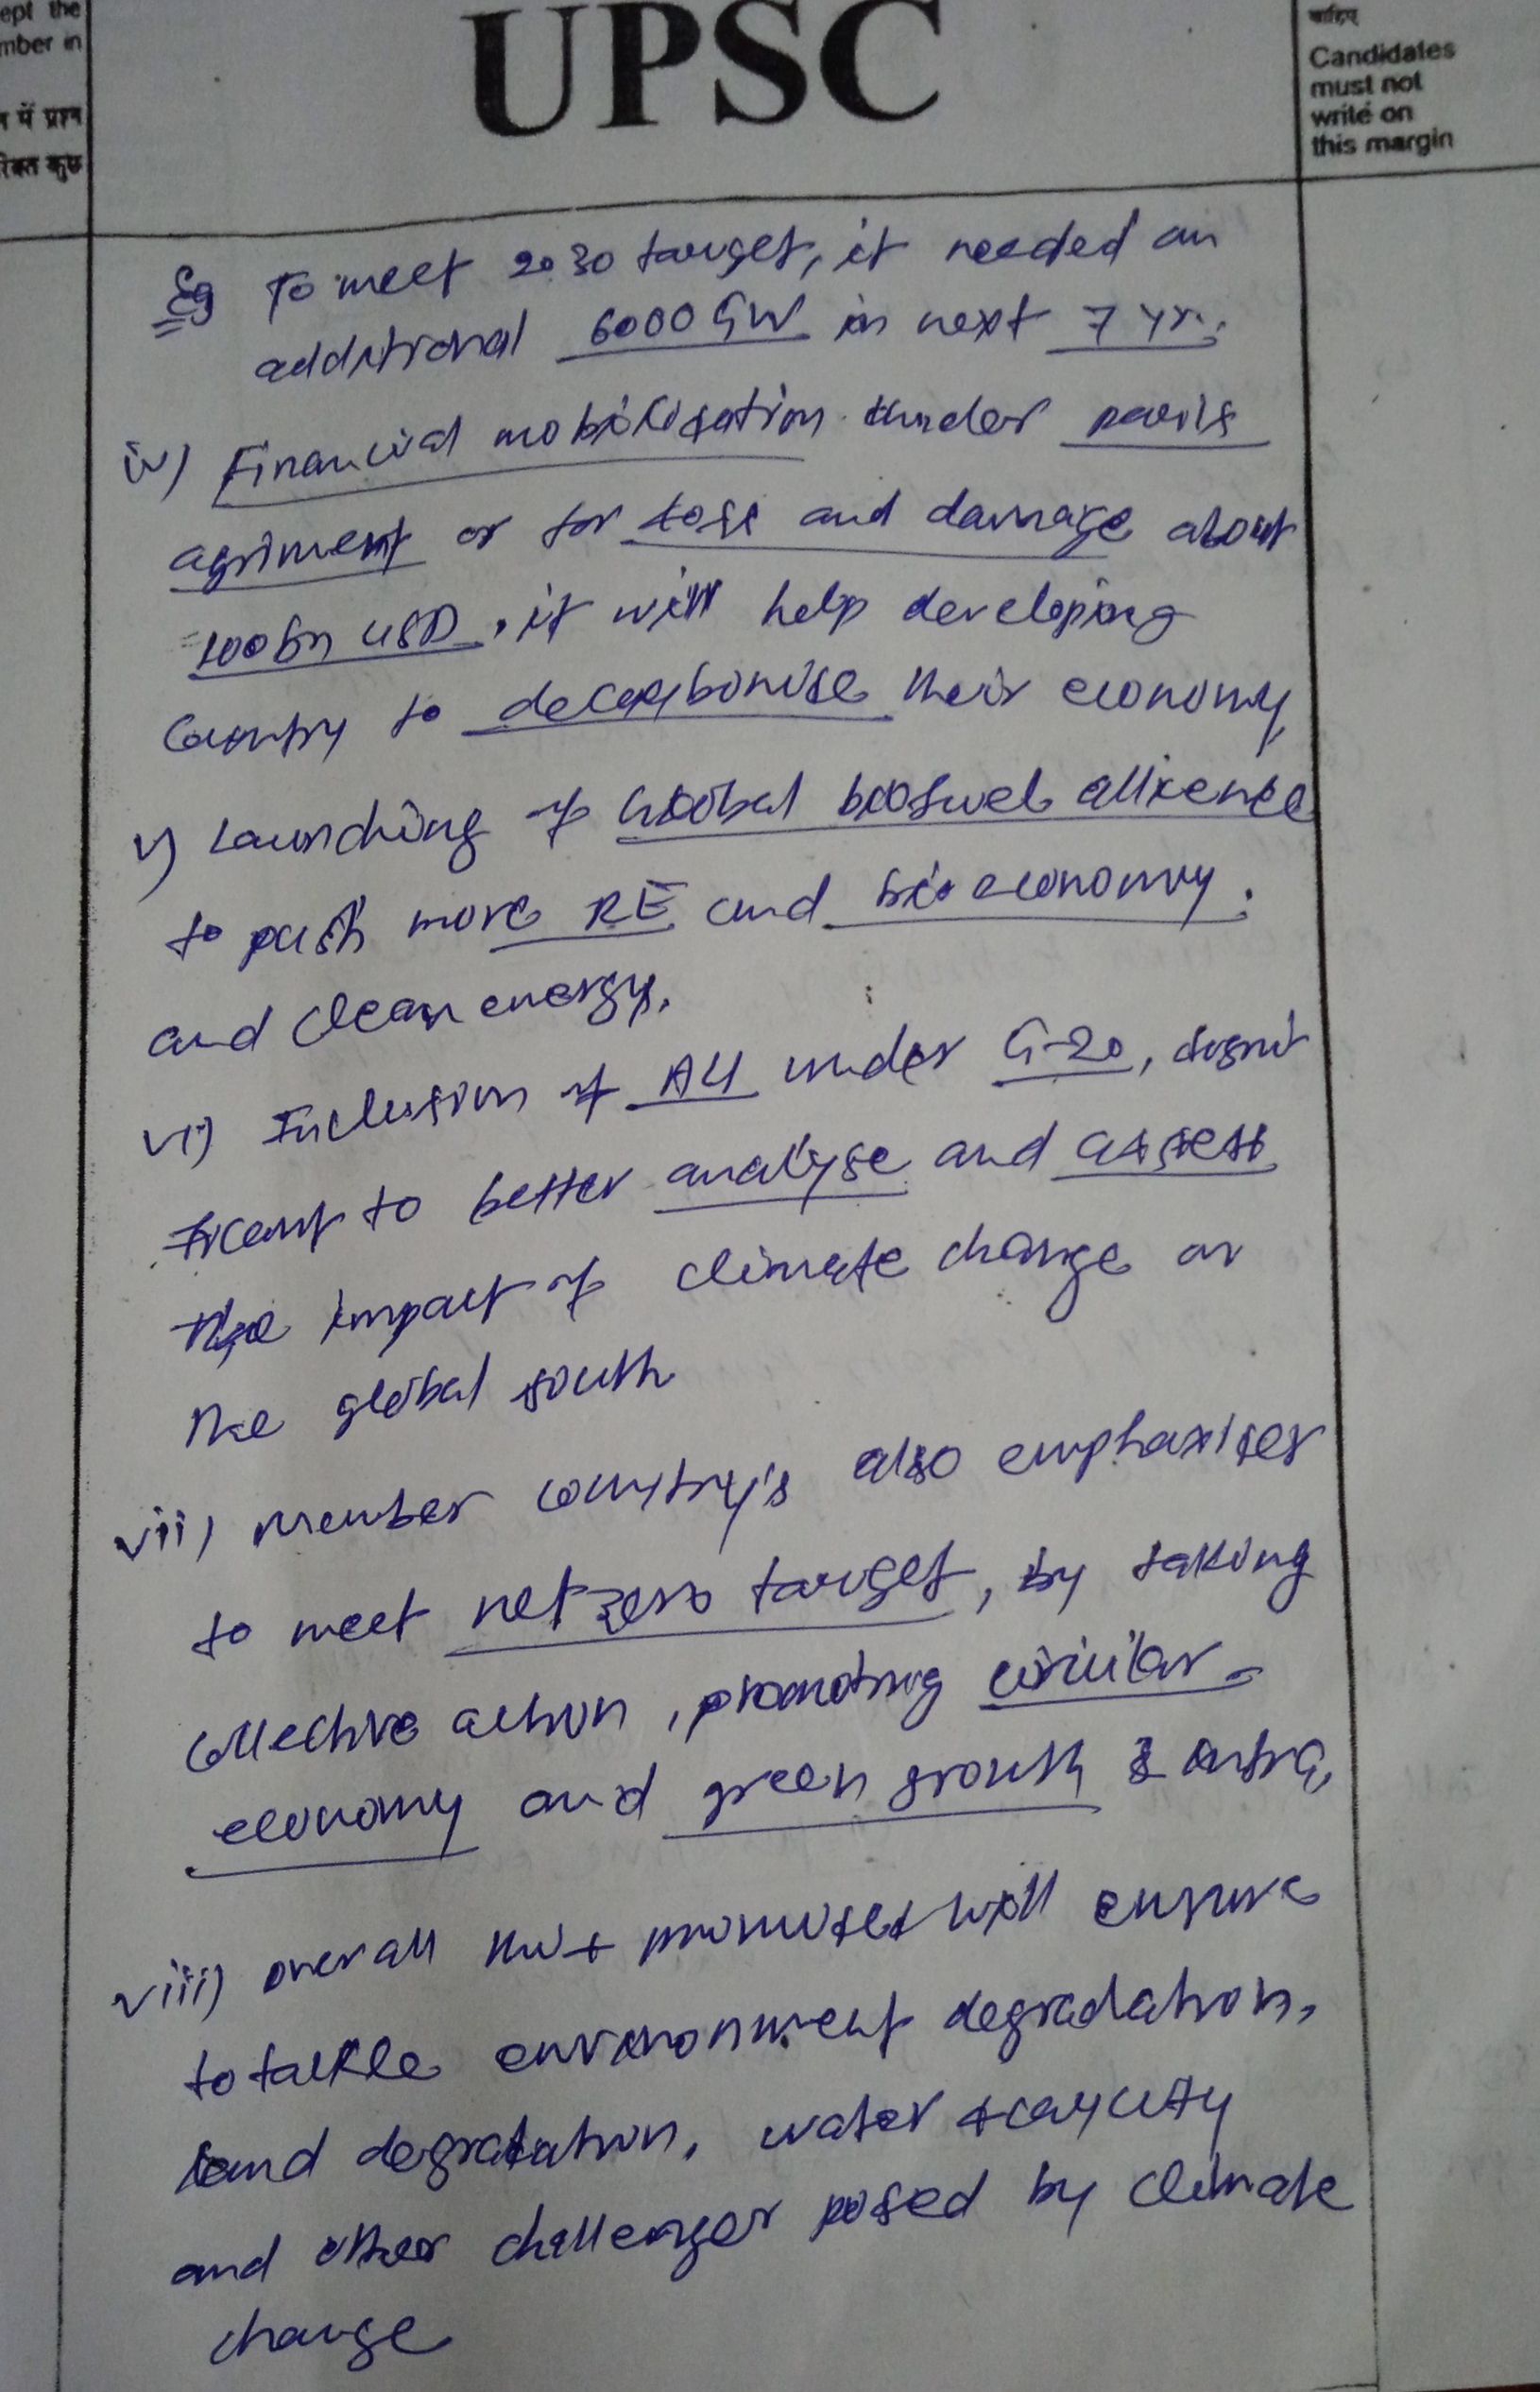 ept the
mber in
न में प्रश्न
रिक्त कुछ
UPSC
चाहिए
Candidates
must not
write on
this margin
Eg To meet 2030 target, it needed an
additional 6000 GW in next 7 yr.
iv) Financial mobilisation under paris
agriment or for loss and damage about
100 bn USD, it will help developing
Country to decarbonise their economy
v) Launching of Global biofuel allience
to push more RE and bio economy.
and clean energy.
vi) Inclusion of AU under G-20, signi
ficant to better analyse and assess
the impact of climate change on
the global south
vii) member country's also emphasises
to meet net zero target, by taking
collective action, promoting circular
economy and green growth & infra,
viii) overall this promises will ensure
to tackle environment degradation,
land degradation, water scarcity
and other challenges posed by climate
change